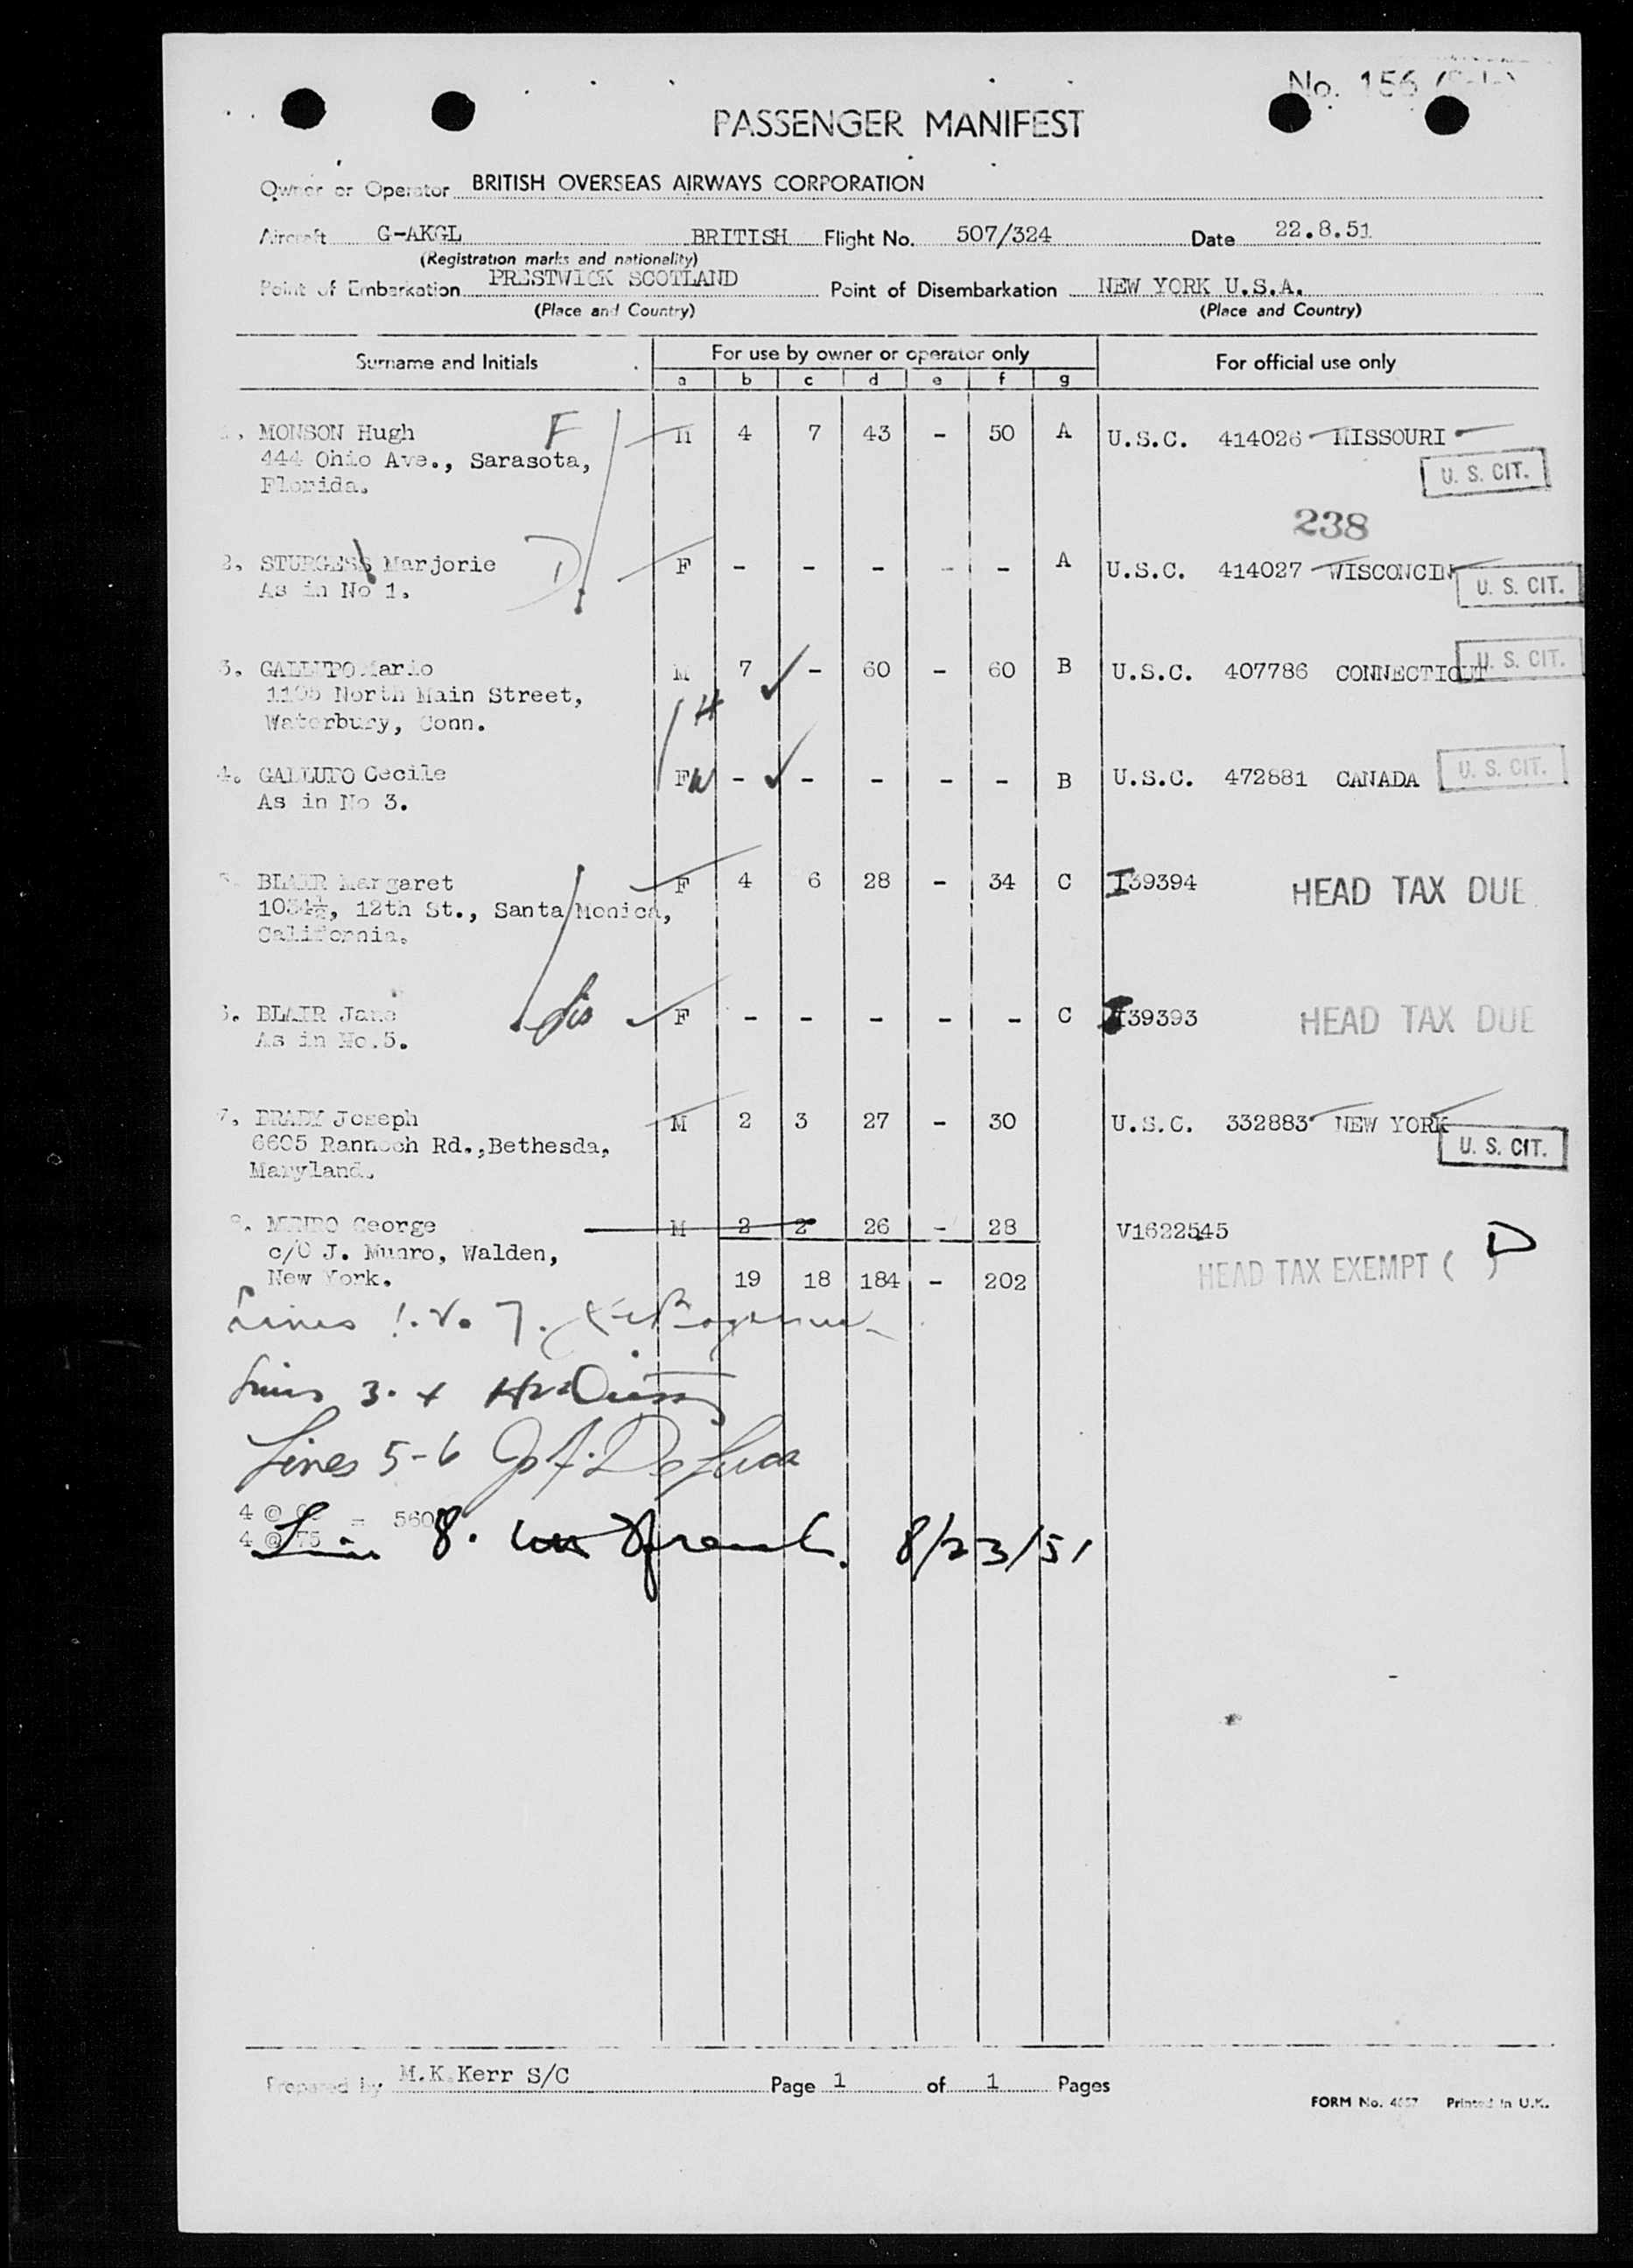 No. 156
PASSENGER MANIFEST
Owner or Operator BRITISH OVERSEAS AIRWAYS CORPORATION
Aircraft G-AKGL BRITISH Flight No. 507/324 Date 22.8.51
(Registration marks and nationality)
Point of Embarkation PRESTWICK SCOTLAND Point of Disembarkation NEW YORK U.S.A.
(Place and Country) (Place and Country)
Surname and Initials For use by owner or operator only For official use only
a b c d e f g
1. MONSON Hugh F M 4 7 43 - 50 A U.S.C. 414026 MISSOURI
444 Ohio Ave., Sarasota, U. S. CIT.
Florida.
238
2. STURGESS Marjorie D F - - - - - A U.S.C. 414027 WISCONCIN
As in No 1. U. S. CIT.
3. GALLUPO Mario M 7 - 60 - 60 B U.S.C. 407786 CONNECTICUT U. S. CIT.
1105 North Main Street, H
Waterbury, Conn.
4. GALLUTO Cecile F W - - - - - B U.S.C. 472881 CANADA U. S. CIT.
As in No 3.
5. BLAIR Margaret F 4 6 28 - 34 C I39394 HEAD TAX DUE
1034½, 12th St., Santa Monica,
California.
6. BLAIR Jane F - - - - - C I39393 HEAD TAX DUE
As in No.5.
7. BRADY Joseph M 2 3 27 - 30 U.S.C. 332883 NEW YORK
6605 Rannoch Rd.,Bethesda, U. S. CIT.
Maryland.
8. MUNRO George M 2 2 26 - 28 V1622545
c/O J. Munro, Walden, HEAD TAX EXEMPT ( ) D
New York. 19 18 184 - 202
Lines 1. 2. 7.
Lines 3. 4
Lines 5-6 J. A. DeLuca
4 @
4 @ 75 = 560
Line 8. 8/23/51
Prepared by M.K.Kerr S/C Page 1 of 1 Pages
FORM No. 4057 Printed in U.K.